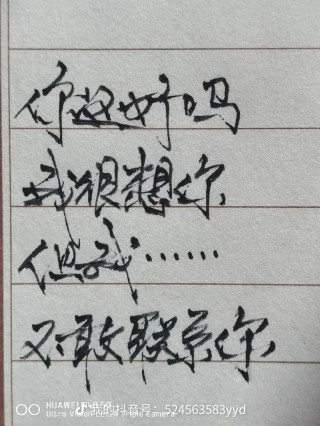 你还好吗
我很想你
但我……
不敢联系你
HUAWEI
我的抖音号：524563583yyd
Ultra Vision Leica Triple Camera